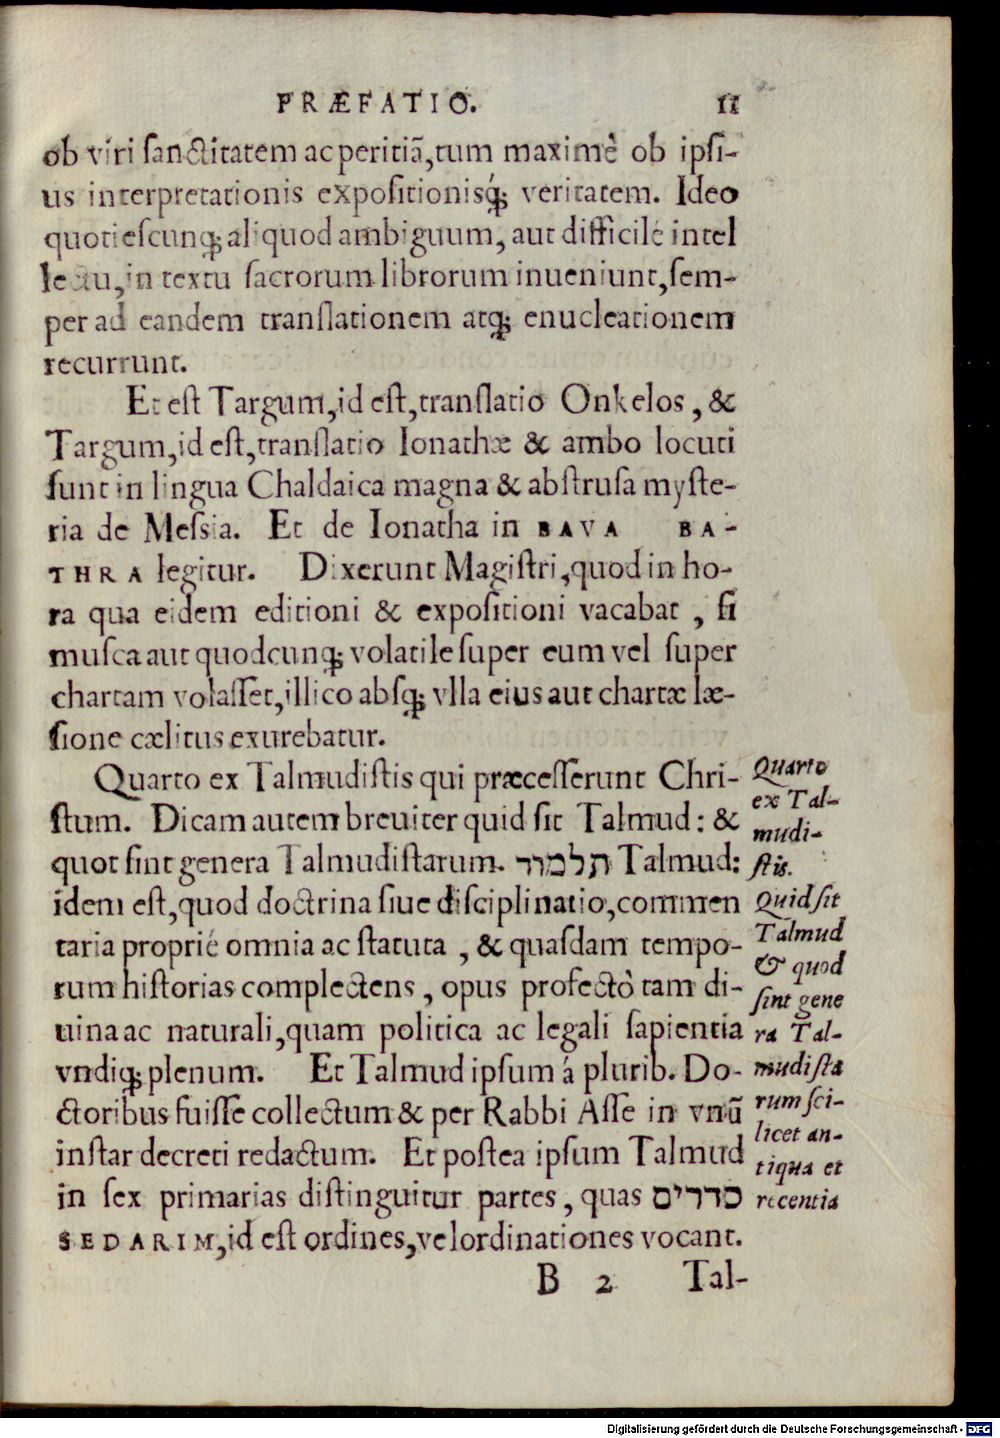 PRÆFATIO. 11
ob viri ſanctitatem ac peritiã, tum maximè ob ipſi-
us interpretationis expoſitionisq́; veritatem. Ideo
quotieſcunq; aliquod ambiguum, aut difficilé intel
lectu, in textu ſacrorum librorum inueniunt, ſem-
per ad eandem tranſlationem atq; enucleationem
recurrunt.
Et eſt Targum, id eſt, tranſlatio Onkelos, &
Targum, id eſt, tranſlatio Ionathæ & ambo locuti
ſunt in lingua Chaldaica magna & abſtruſa myſte-
ria de Meſsia. Et de Ionatha in BAVA BA-
THRA legitur. Dixerunt Magiſtri, quod in ho-
ra qua eidem editioni & expoſitioni vacabat, ſi
muſca aut quodcunq; volatile ſuper eum vel ſuper
chartam volaſſet, illico abſq; vlla eius aut chartæ læ-
ſione cælitus exurebatur.
Quarto ex Talmudiſtis qui præceſſerunt Chri-
ſtum. Dicam autem breuiter quid ſit Talmud: &
quot ſint genera Talmudiſtarum. תלמוד Talmud:
idem eſt, quod doctrina ſiue diſciplinatio, commen
taria proprié omnia ac ſtatuta, & quaſdam tempo-
rum hiſtorias complectens, opus profectò tam di-
uina ac naturali, quam politica ac legali ſapientia
vndiq; plenum. Et Talmud ipſum á plurib. Do-
ctoribus fuiſſe collectum & per Rabbi Aſſe in vnũ
inſtar decreti redactum. Et poſtea ipſum Talmud
in ſex primarias diſtinguitur partes, quas סדרים
SEDARIM, id eſt ordines, vel ordinationes vocant.
B 2 Tal-
Quarto
ex Tal-
mudi-
ſtis.
Quid ſit
Talmud
& quod
ſint gene
ra Tal-
mudiſta
rum ſci-
licet an-
tiqua et
recentia
Digitalisierung gefördert durch die Deutsche Forschungsgemeinschaft - DFG